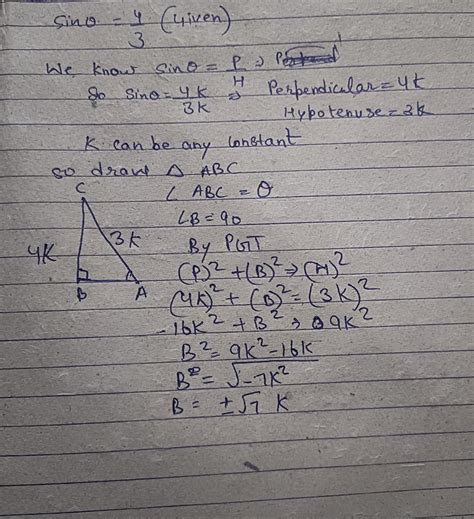 Sinθ = 4/3 (Given)
We know Sinθ = P/H ⇒
So Sinθ = 4K/3K ⇒ Perpendicular = 4K
Hypotenuse = 3K
K can be any constant
so draw △ ABC
∠ ABC = θ
∠B = 90
By PGT
(P)² + (B)² ⇒ (H)²
(4K)² + (B)² = (3K)²
-16K² + B² ⇒ 9K²
B² = 9K² - 16K
B² = √-7K²
B = ±√7 K
C
4K
3K
B
A